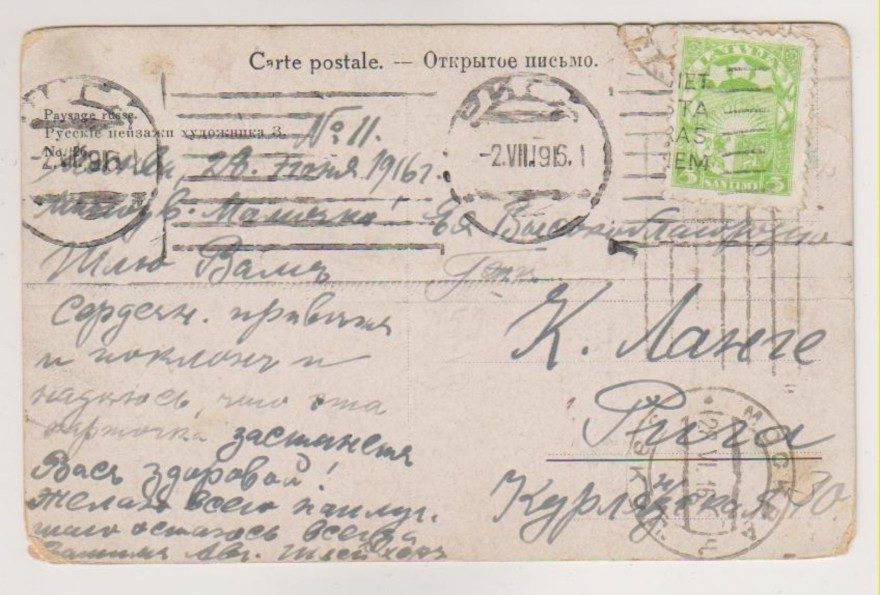 Carte postale. — Открытое письмо.
Paysage russe.
Русскіе пейзажи художника З.
No. 26.
№ 11.
Москва, 28. Іюня 1916 г.
Мамочка!
Шлю Вамъ
сердечн. привѣтъ
и поклонъ и
надѣюсь, что эта
карточка застанетъ
Васъ здоровой!
Желаю всего наилуч.
остаюсь всегда
Вашимъ Авг.
Ея Высокоблагородію
Г-жѣ
К. Ланге
Рига
Курляндская 30.
2.VII.1915.1
LATVIJA
5 SANTIMI 5
МОСКВА